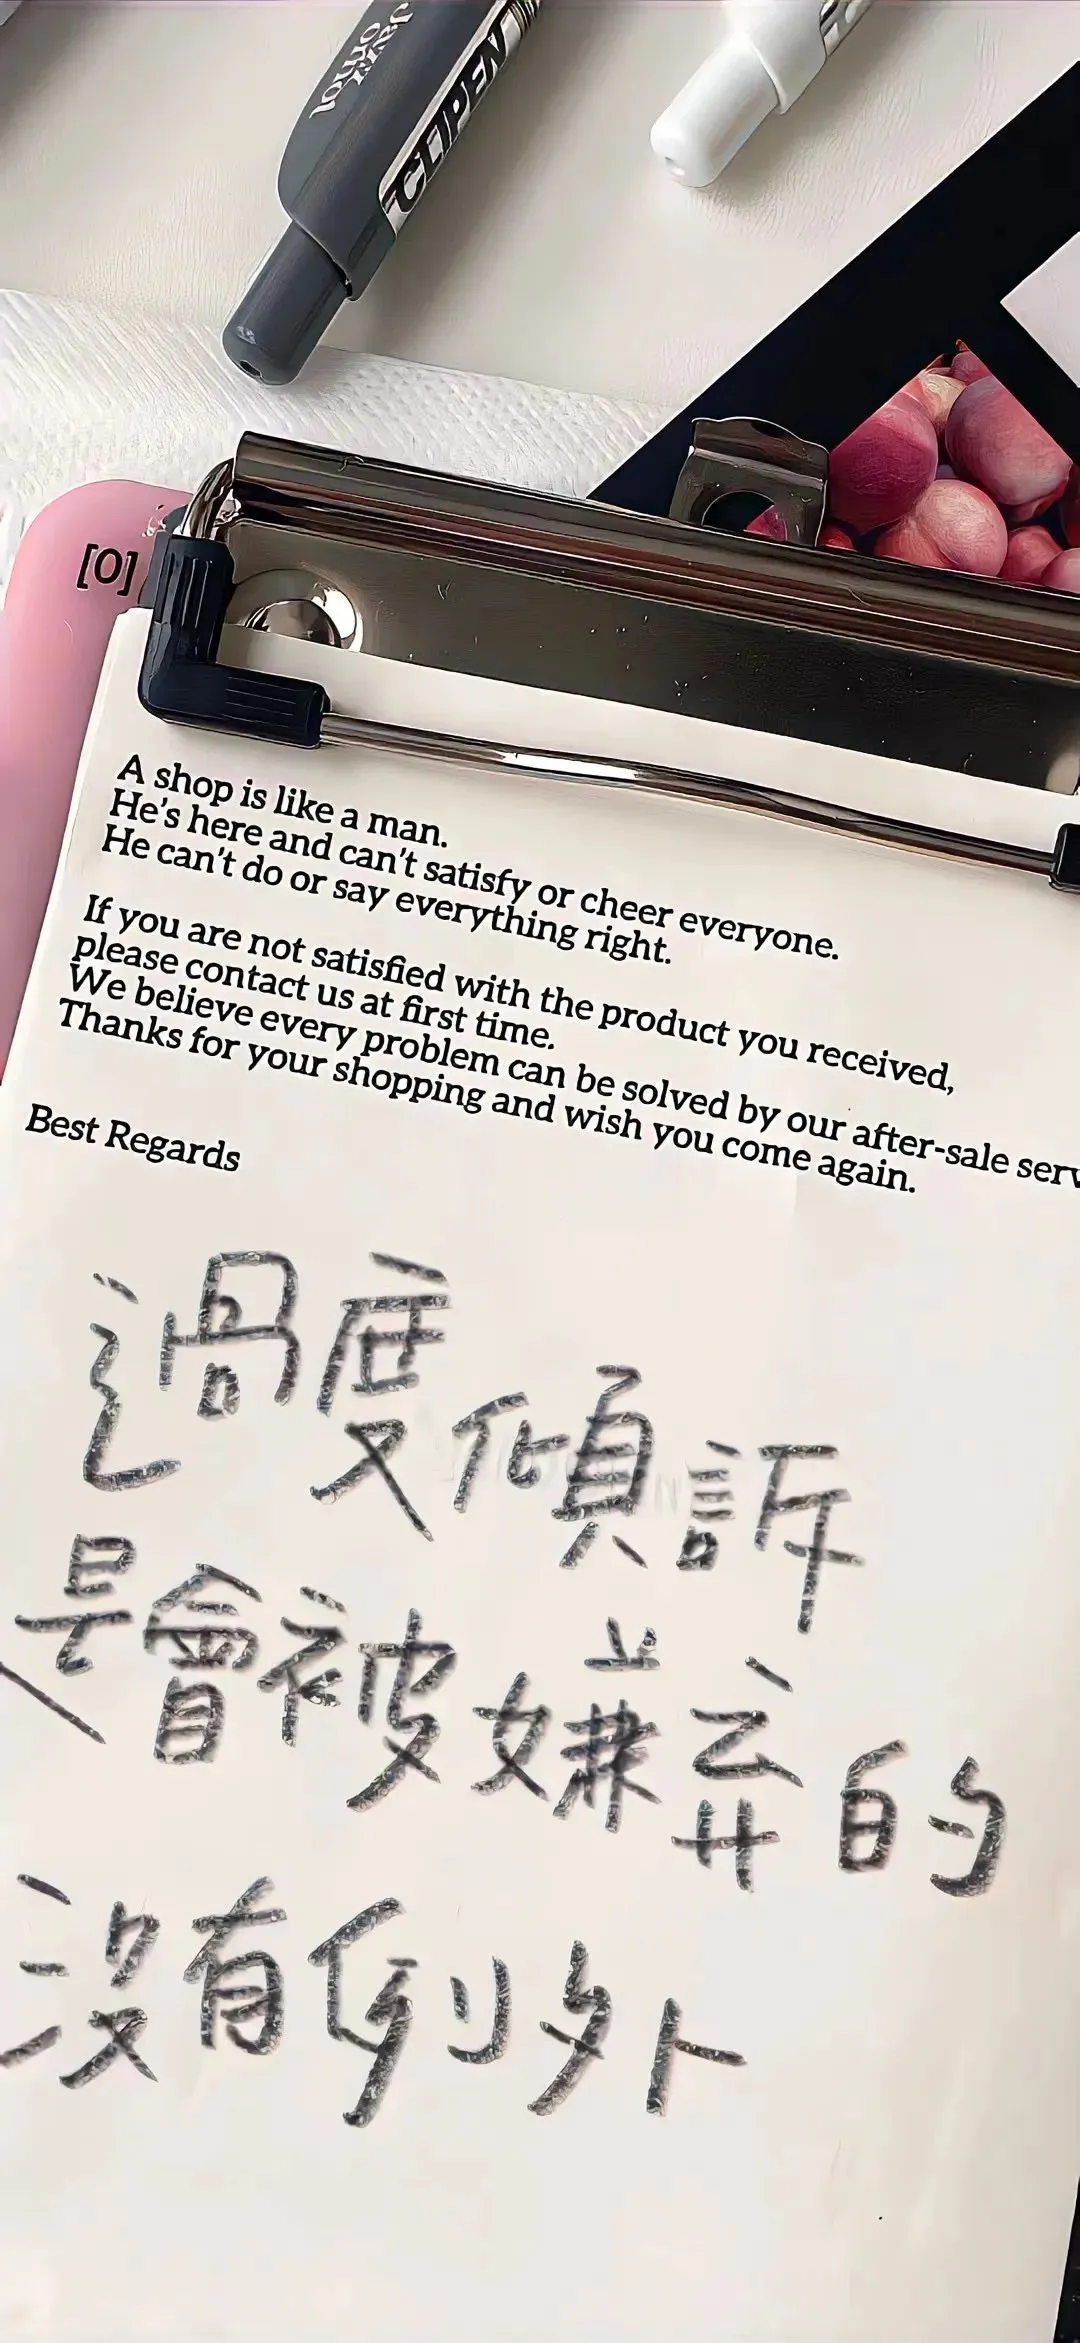 CLIPEN
[O]
A shop is like a man.
He's here and can't satisfy or cheer everyone.
He can't do or say everything right.
If you are not satisfied with the product you received,
please contact us at first time.
We believe every problem can be solved by our after-sale serv
Thanks for your shopping and wish you come again.
Best Regards
過度傾訴
是會被嫌弃的
沒有例外